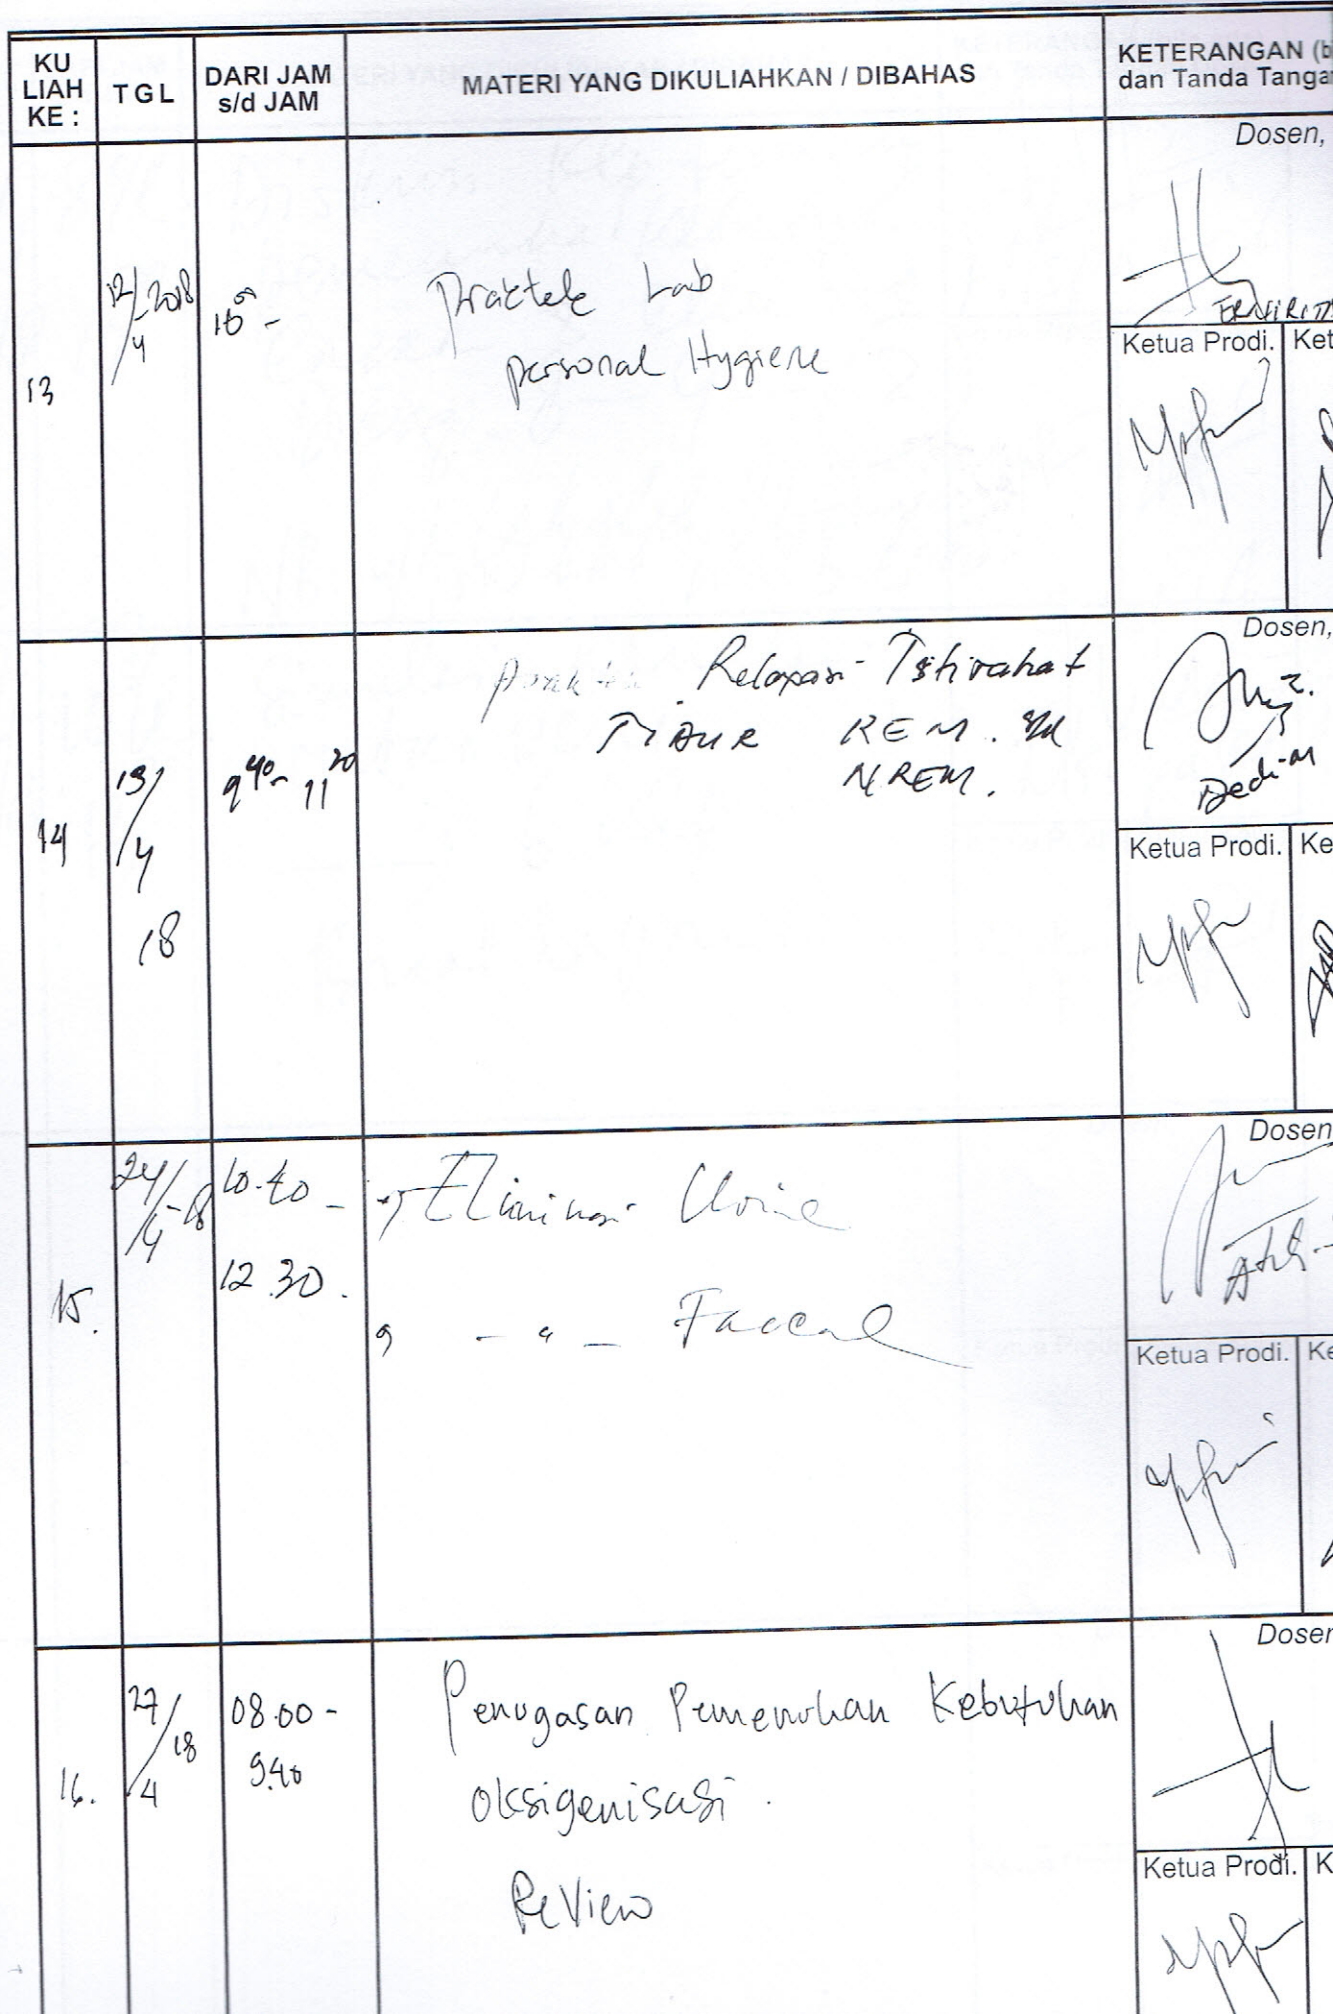 KU LIAH KE :
TGL
DARI JAM s/d JAM
MATERI YANG DIKULIAHKAN / DIBAHAS
KETERANGAN (b
dan Tanda Tanga
Dosen,
13
12/4-2018
Praktek Lab
personal Hygiene
Ketua Prodi.
Ket
14
13/4 18
9 40 - 11 20
Relaxasi Istirahat
TIDUR REM. &
NREM.
Dosen,
Dedi
Ketua Prodi.
Ke
15.
24/4-18
10.40 -
12.30.
Eliminasi Urine
- " - Faecal
Dosen
Ketua Prodi.
Ke
16.
27/4 18
08.00 -
9.40
Penugasan Pemenuhan Kebutuhan
Oksigenisasi.
Review
Dosen
Ketua Prodi.
K